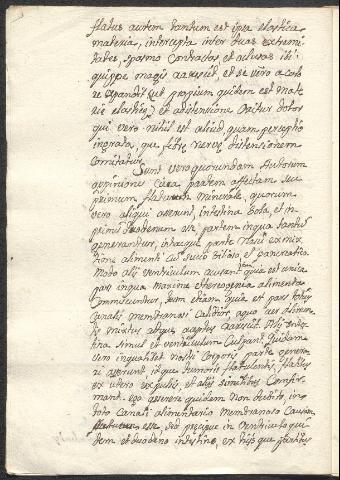 flatus autem tantum est ipsa elastica
materia, intercepta inter duas extremi
tates, spasmo contractas, et clusas ibi
quippe magis auescit, et se vero a calo
re expandit (ut proprium quidem est mate
rie elastice) et a distensione oritur dolor
qui vero nihil est aliud, quam perceptio
ingrata, que fibre nervee distensionem
comitatur.
Sunt vero quorundam Autorum
oppiniones circa partem affectam seu
primum flatuum minerale, quorum
vero aliqui asserunt, intestina sola, et in
primis duodenum esse, partem in qua tantum
generantur, in ea que parte flatus ex mix
tione alimenti cum succo bilioso, et pancreatico.
Modo alii ventriculum accusant quia est unica
pars in qua maxime etherogenea alimenta
commiscentur, tum etiam quia et pars totius
canalis membranosi calidior, a quo aer alimen
tis mixtus atque captus
na simul et ventriculum culpant. Quidam
vero in qualibet nostri corporis parte genera
ri asserunt, idque tumoris flatulentis, flatibus
ex utero expulsis, et aliis similibus confir
mant. ego asserere quidem non dubito, in
toto canali alimentario membranoso causam
flatuum esse, sed precipue in ventriculo qui
dem et duodeno intestino, ex hiis que partibus